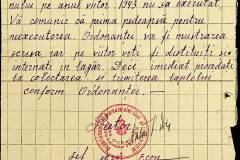 nului pe anul viitor 1943 nu sa executat.
Vă comunic că prima pedeapsă pentru
neexecutarea Ordonanței va fi mustrarea
scrisă iar pe viitor veți fi destituiți și
internați în lagăr. Deci imediat procedați
la colectarea și trimiterea laptelui
conform Ordonanței.
Pretor
șef serv. econ.